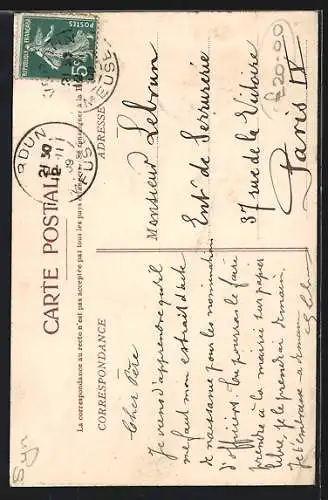 CARTE POSTALE
La correspondance au recto n'est pas acceptée par tous les pays étrangers. Se renseigner à la
CORRESPONDANCE
ADRESSE
Cher Père
Je viens d'apprendre qu'il
me faut mon extrait d'acte
de naissance pour les nominations
d'officiers. Tu pourras le faire
prendre à la mairie sur papier
libre, je le prendrai demain.
Je t'embrasse - a demain
Monsieur Lebrun
Ent. de Serrurerie
37 rue de la Victoire
Paris IX
RDUN
30
11
09
MEUSE
5c
REPUBLIQUE FRANÇAISE
20.00